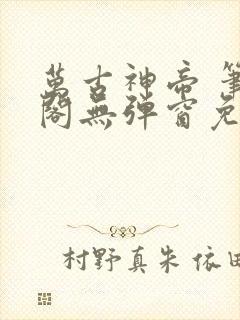 萬古神帝 筆
閣無彈窗免
村野真朱 依田